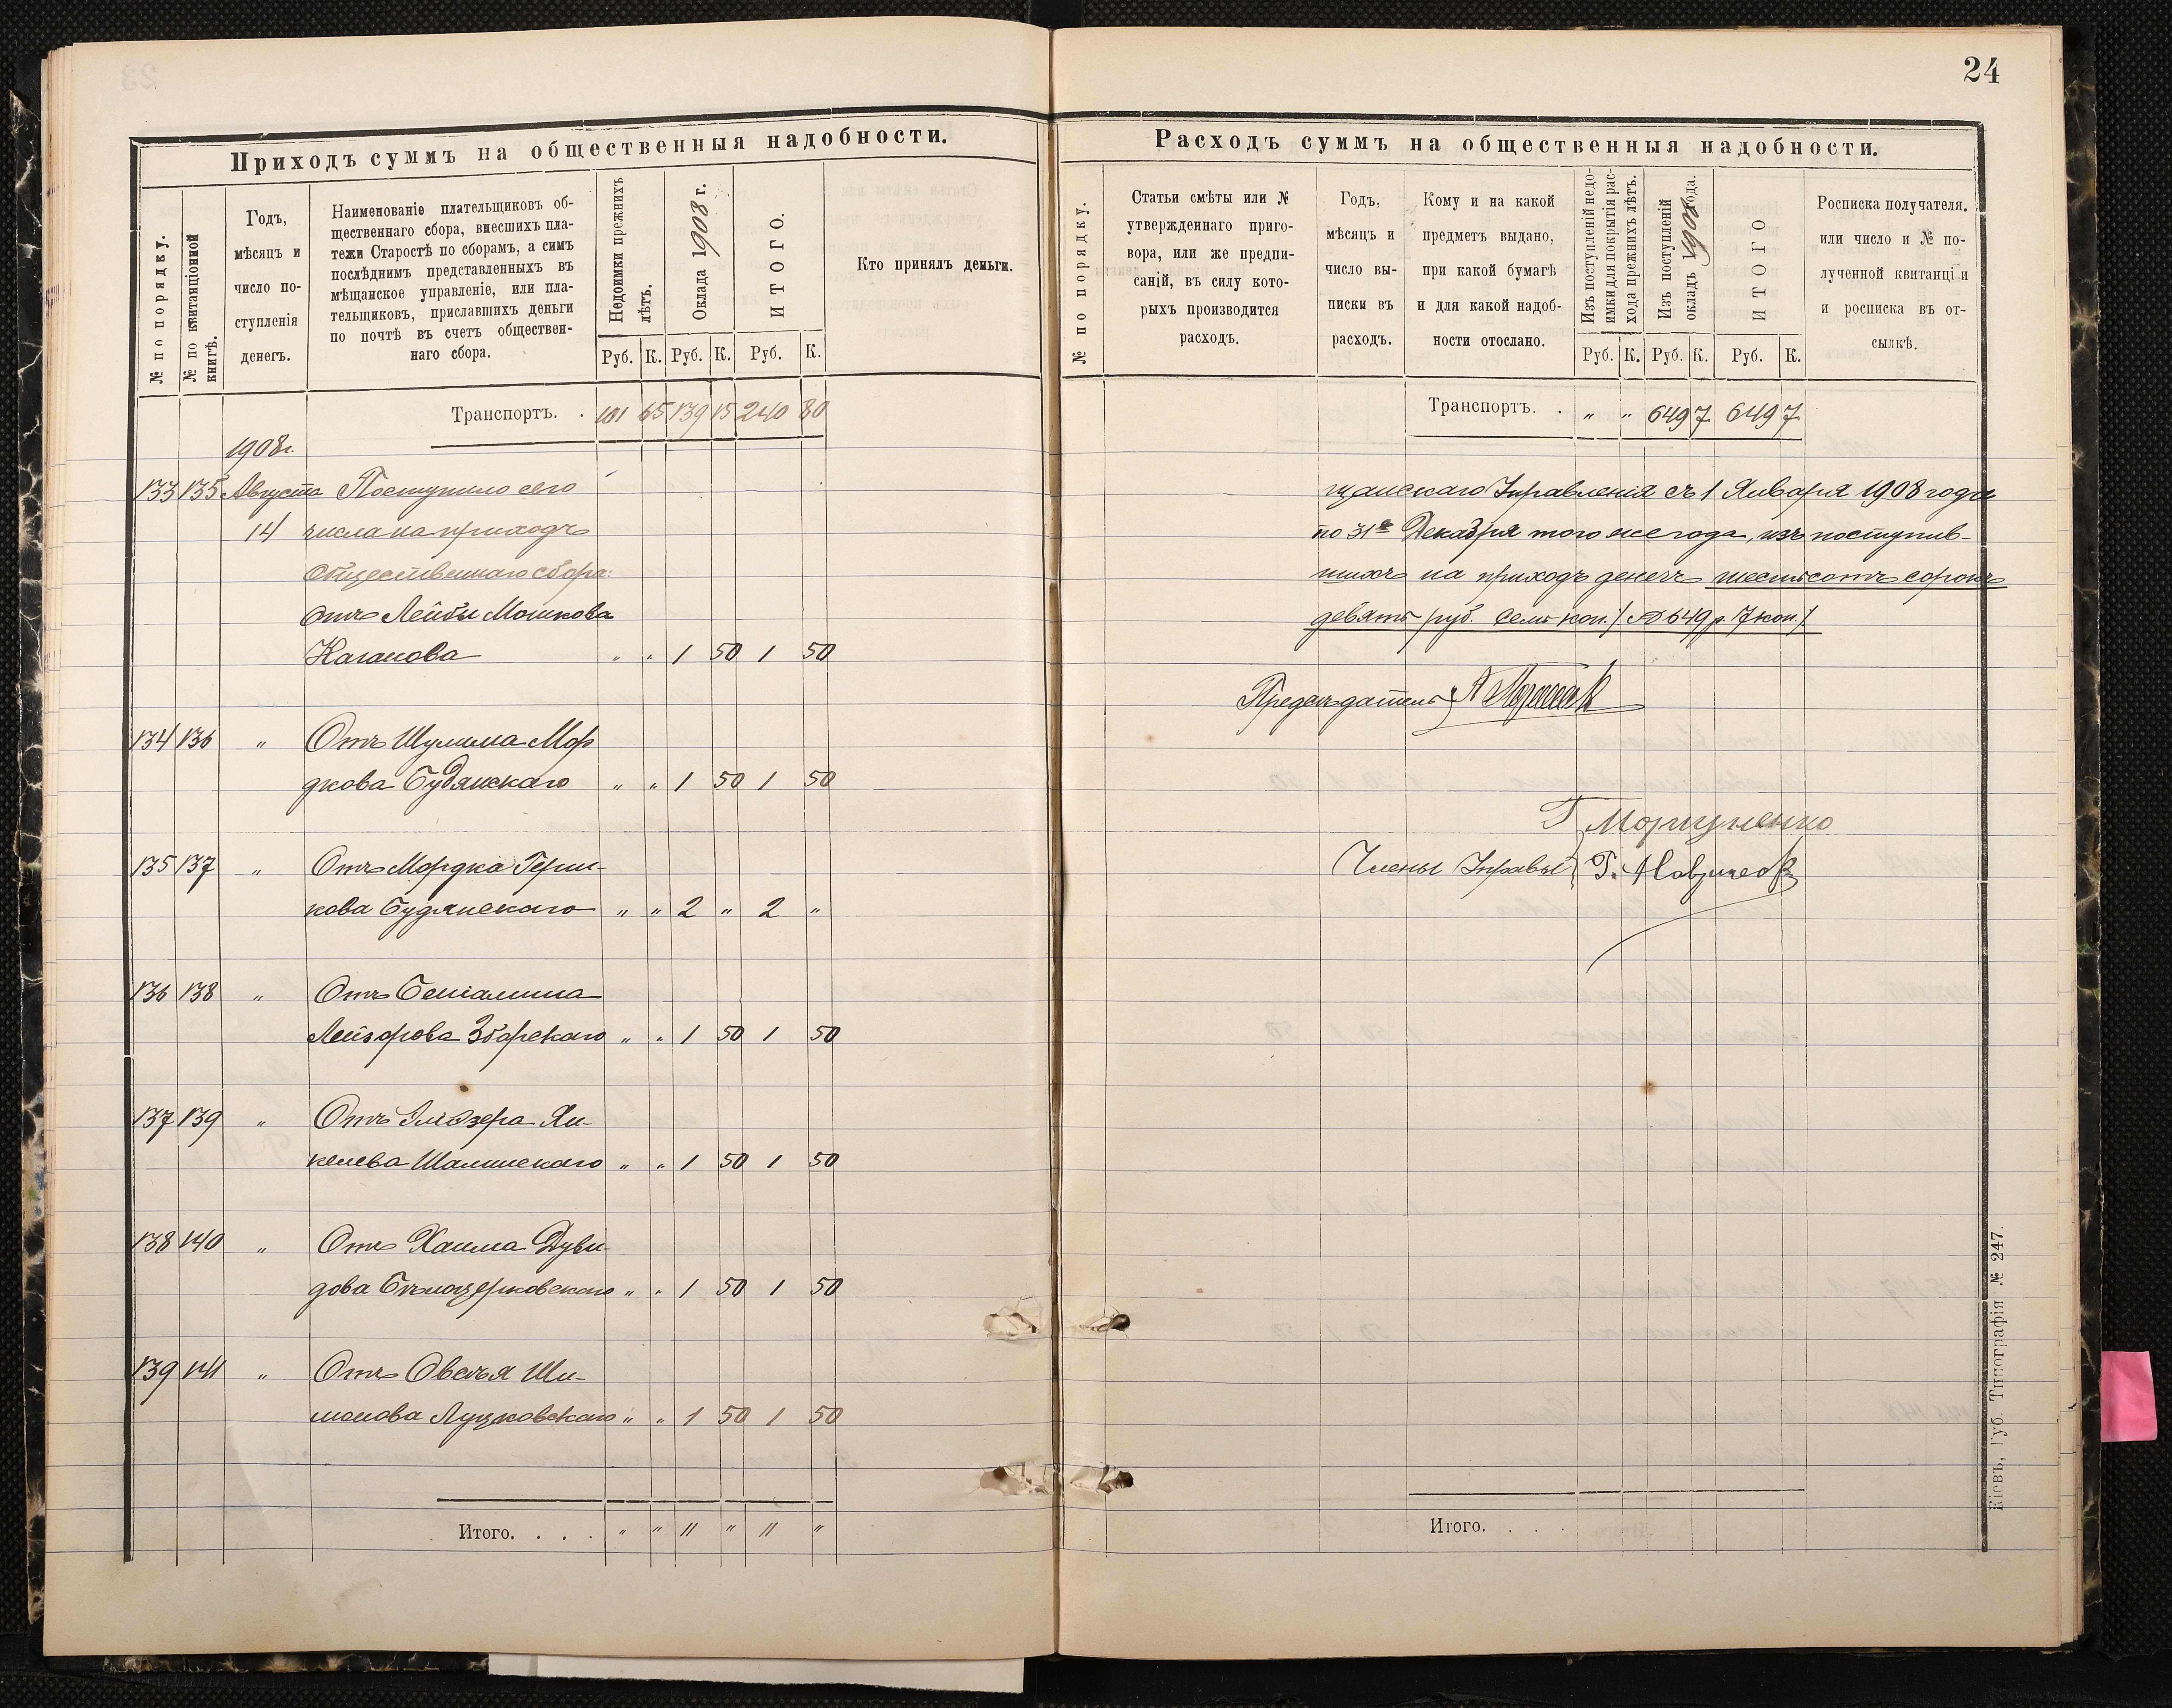 24
Приходъ суммъ на общественныя надобности.
№ по порядку.
№ по квитанціонной книгѣ.
Годъ,
мѣсяцъ и
число по-
ступленія
денегъ.
Наименованіе плательщиковъ об-
щественнаго сбора, внесшихъ пла-
тежи Старостѣ по сборамъ, а симъ
послѣднимъ представленныхъ въ
мѣщанское управленіе, или пла-
тельщиковъ, приславшихъ деньги
по почтѣ въ счетъ обществен-
наго сбора.
Недоимки прежнихъ лѣтъ.
Оклада 1908 г.
ИТОГО.
Кто принялъ деньги.
Руб. К. Руб. К. Руб. К.
Транспортъ. . 101 65 139 15 240 80
1908г.
133 135 Августа Поступило сего
14 числа на приходъ
общественнаго сбора:
отъ Лейбы Мошкова
Каганова " " 1 50 1 50
134 136 " Отъ Шулима Мор
дкова Будянскаго " " 1 50 1 50
135 137 " Отъ Мордка Герш-
кова Будянскаго " " 2 " 2 "
136 138 " Отъ Беніамина
Лейзорова Збарскаго " " 1 50 1 50
137 139 " Отъ Элiозера Ян-
келева Шалинскаго " " 1 50 1 50
138 140 " Отъ Хаима Дуви-
дова Бѣлоцерковскаго " " 1 50 1 50
139 141 " Отъ Овсѣя Ши-
монова Луцковскаго " " 1 50 1 50
Итого. . . . " " " " " "
Расходъ суммъ на общественныя надобности.
№ по порядку.
Статьи смѣты или №
утвержденнаго приго-
вора, или же предпи-
саній, въ силу кото-
рыхъ производится
расходъ.
Годъ,
мѣсяцъ и
число вы-
писки въ
расходъ.
Кому и на какой
предметъ выдано,
при какой бумагѣ
и для какой надоб-
ности отослано.
Изъ поступленій недо-
имки для покрытія рас-
хода прежнихъ лѣтъ.
Изъ поступленій
окладъ 1908 года.
ИТОГО
Росписка получателя.
или число и № по-
лученной квитанціи
и росписка въ от-
сылкѣ.
Руб. К. Руб. К. Руб. К.
Транспортъ. . " " 649 7 649 7
щанскаго Управленія съ 1 Января 1908 года
по 31е Декабря того же года, изъ поступив-
шихъ на приходъ денегъ шестьсотъ сорокъ
девять руб. семь коп. / 649 р. 7 коп./
Предсѣдатель
Члены Управы
Итого. . . .
Кіевъ, Губ. Типографія № 247.